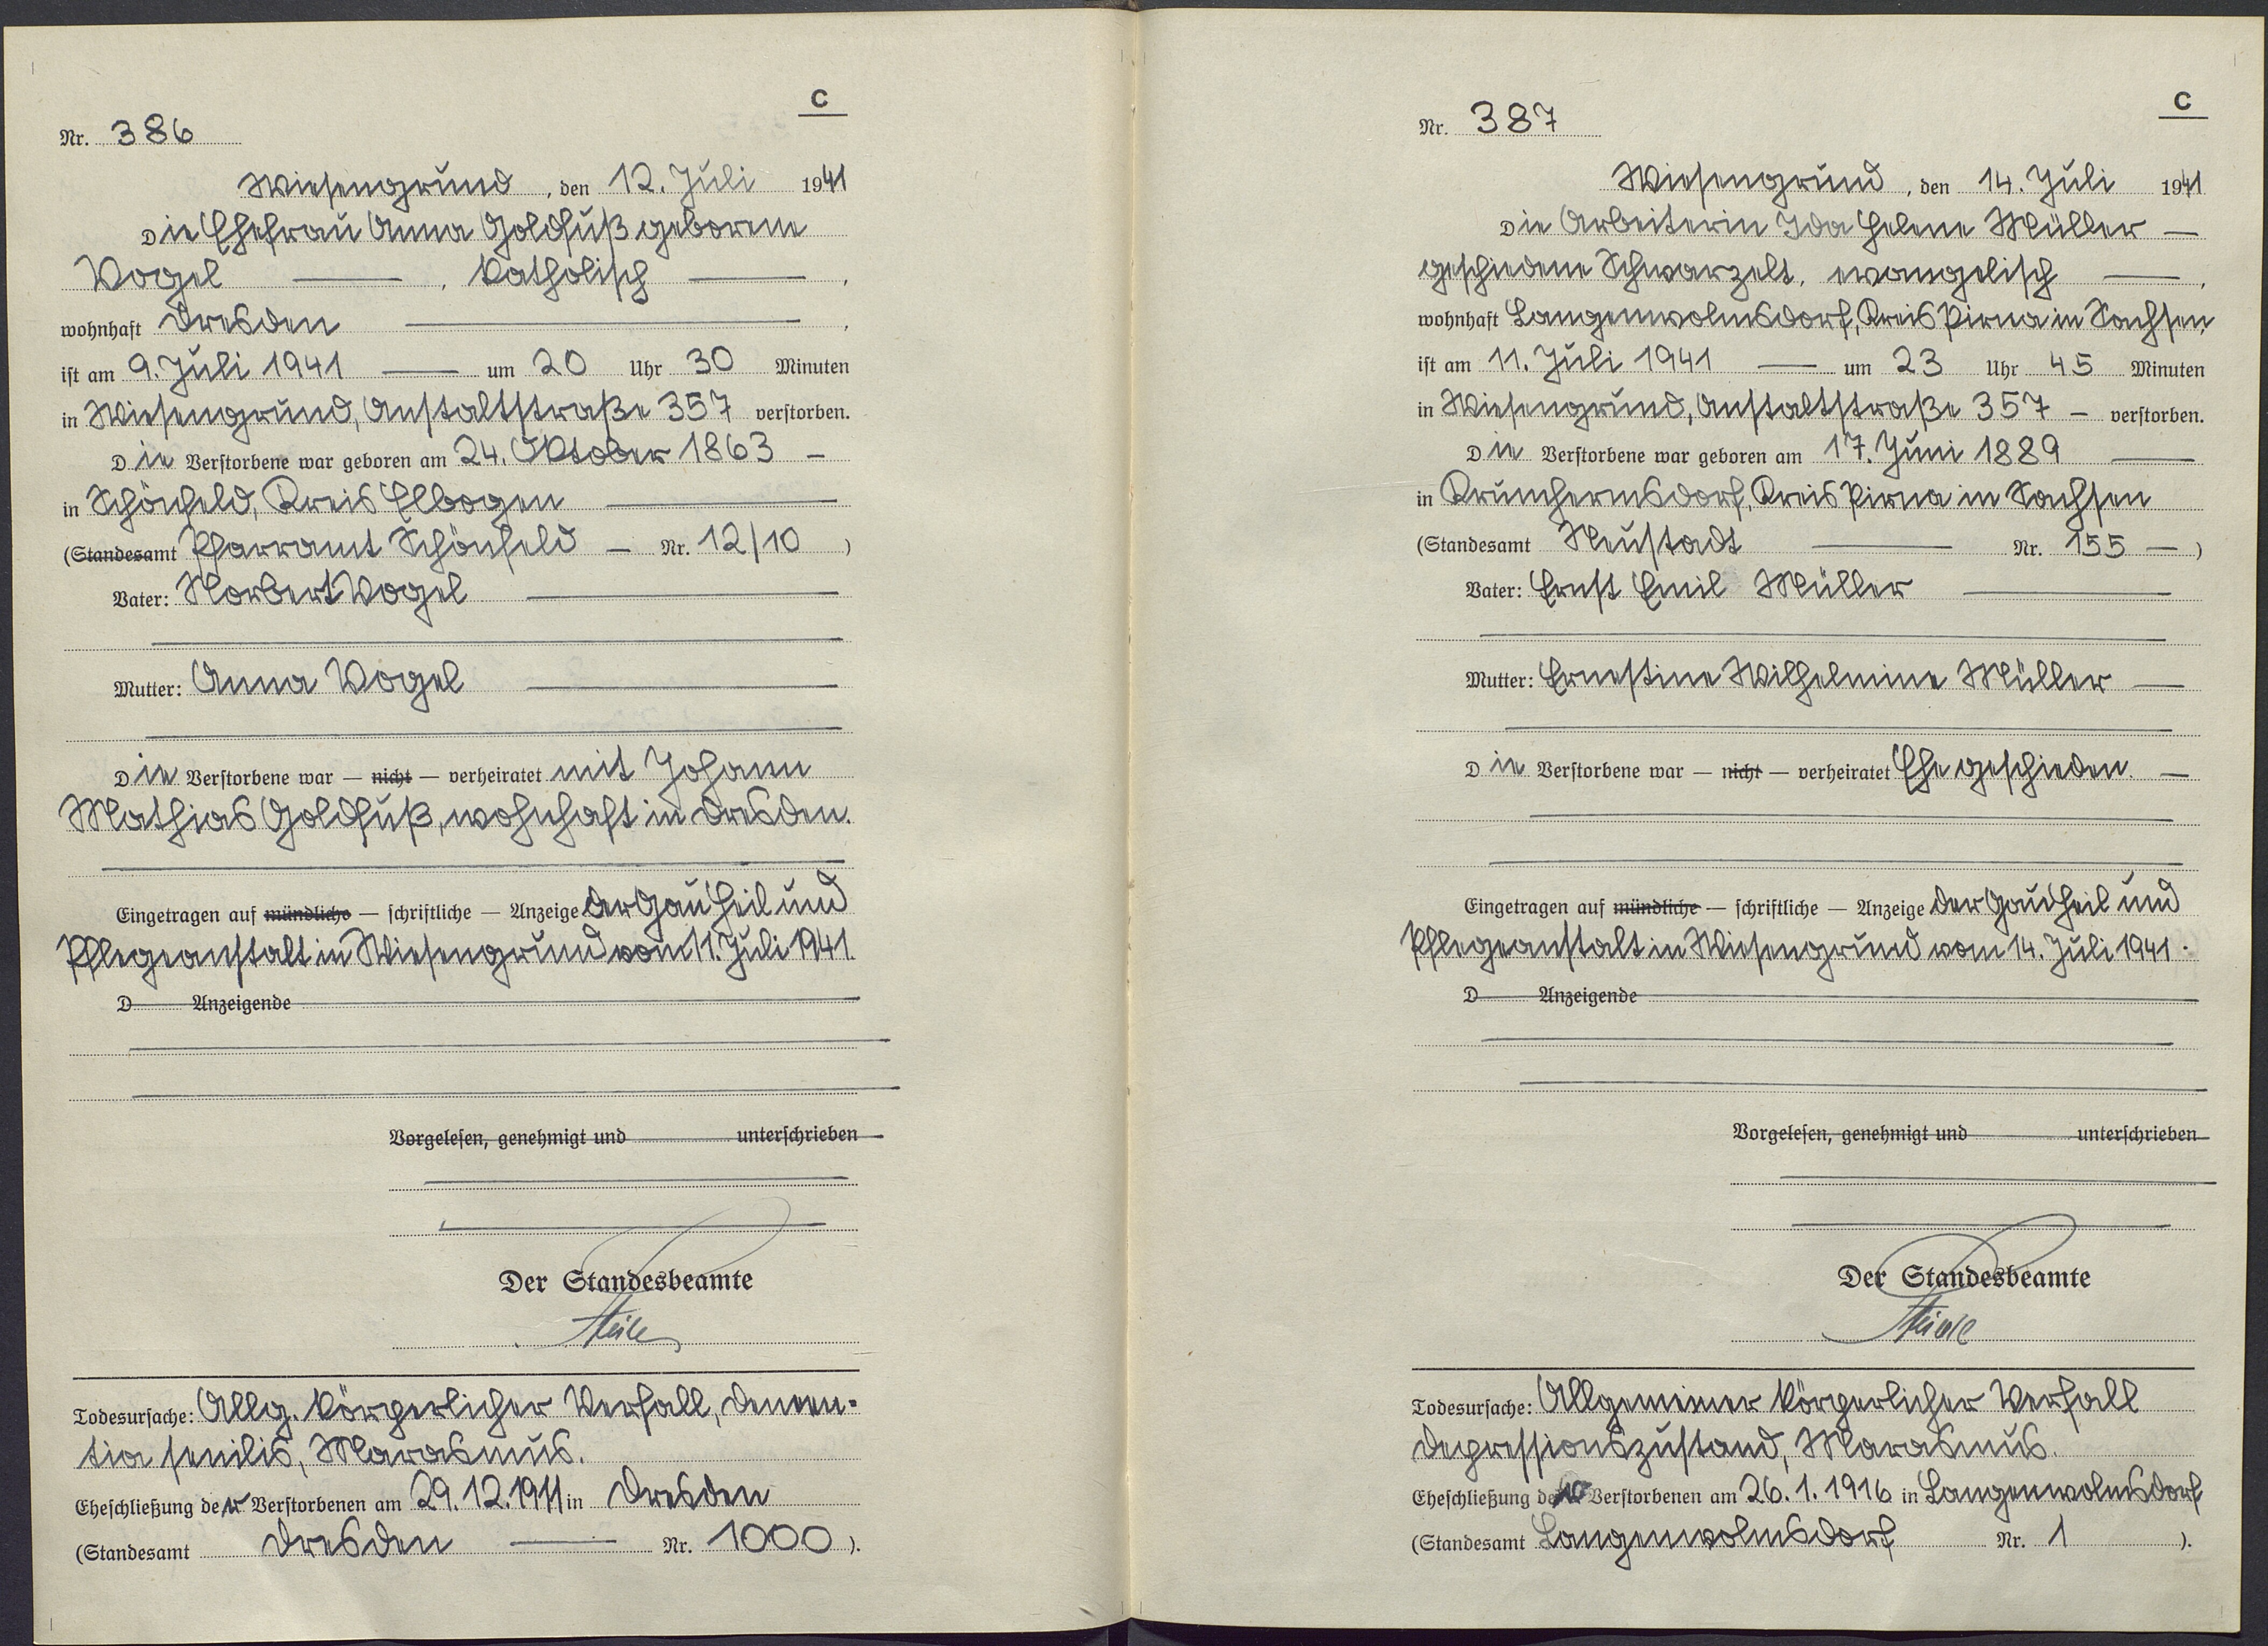 C
Nr. 386
Wiesengrund, den 12. Juli 1941
Die Ehefrau Anna Goldfuß geborene
Vogel — , katholisch — ,
wohnhaft Dresden — ,
ist am 9. Juli 1941 — um 20 Uhr 30 Minuten
in Wiesengrund, Anstaltstraße 357 verstorben.
Die Verstorbene war geboren am 24. Oktober 1863 —
in Schönfeld, Kreis Elbogen —
(Standesamt Pfarramt Schönfeld — Nr. 12/10 )
Vater: Norbert Vogel —
Mutter: Anna Vogel —
Die Verstorbene war — nicht — verheiratet mit Johann
Mathias Goldfuß, wohnhaft in Dresden.
Eingetragen auf mündliche — schriftliche — Anzeige der Gau Heil und
Pflegeanstalt in Wiesengrund vom 11. Juli 1941.
D Anzeigende
Vorgelesen, genehmigt und unterschrieben
Der Standesbeamte
Todesursache: Allg. körperlicher Verfall, Demen-
tia senilis, Marasmus.
Eheschließung der Verstorbenen am 29.12.1911 in Dresden
(Standesamt Dresden — Nr. 1000 ).
C
Nr. 387
Wiesengrund, den 14. Juli 1941
Die Arbeiterin Ida Helene Müller —
geschiedene Schwarzelt, evangelisch — ,
wohnhaft Langenwolmsdorf, Kreis Pirna in Sachsen,
ist am 11. Juli 1941 — um 23 Uhr 45 Minuten
in Wiesengrund, Anstaltstraße 357 — verstorben.
Die Verstorbene war geboren am 17. Juni 1889 —
in Krumhermsdorf, Kreis Pirna in Sachsen
(Standesamt Neustadt — Nr. 155 — )
Vater: Ernst Emil Müller —
Mutter: Ernestine Wilhelmine Müller —
Die Verstorbene war — nicht — verheiratet Ehe geschieden. —
Eingetragen auf mündliche — schriftliche — Anzeige der Gau Heil und
Pflegeanstalt in Wiesengrund vom 14. Juli 1941.
D Anzeigende
Vorgelesen, genehmigt und unterschrieben
Der Standesbeamte
Todesursache: Allgemeiner körperlicher Verfall
Depressionszustand, Marasmus.
Eheschließung der Verstorbenen am 26.1.1916 in Langenwolmsdorf
(Standesamt Langenwolmsdorf Nr. 1 ).